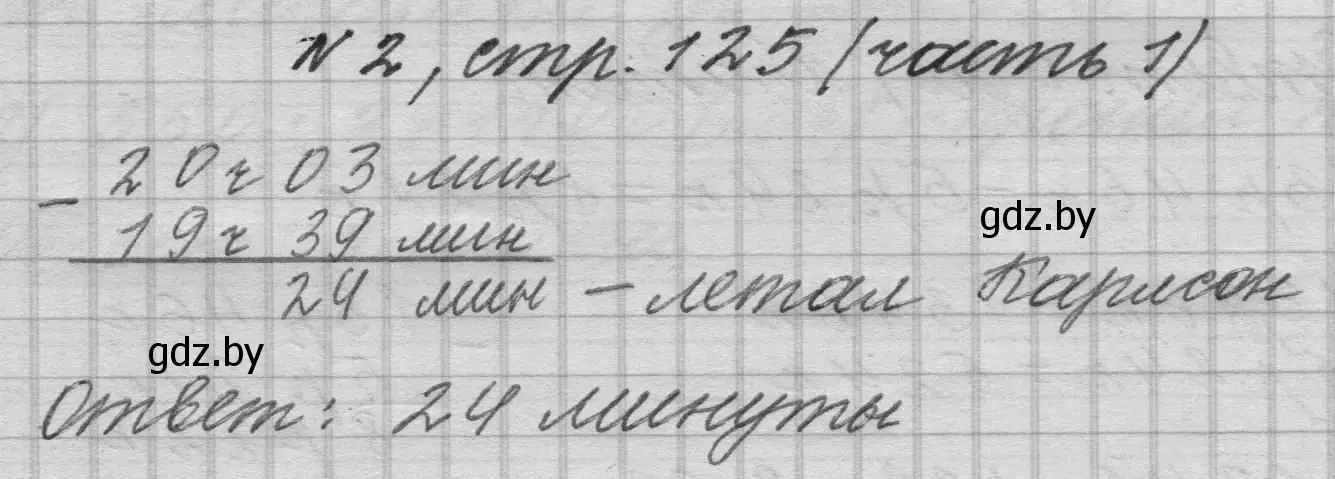 N 2, стр. 125 (часть 1)
- 20 ч 03 мин
19 ч 39 мин
gdz.by
24 мин – летал Карлсон
gdz.by
Ответ: 24 минуты